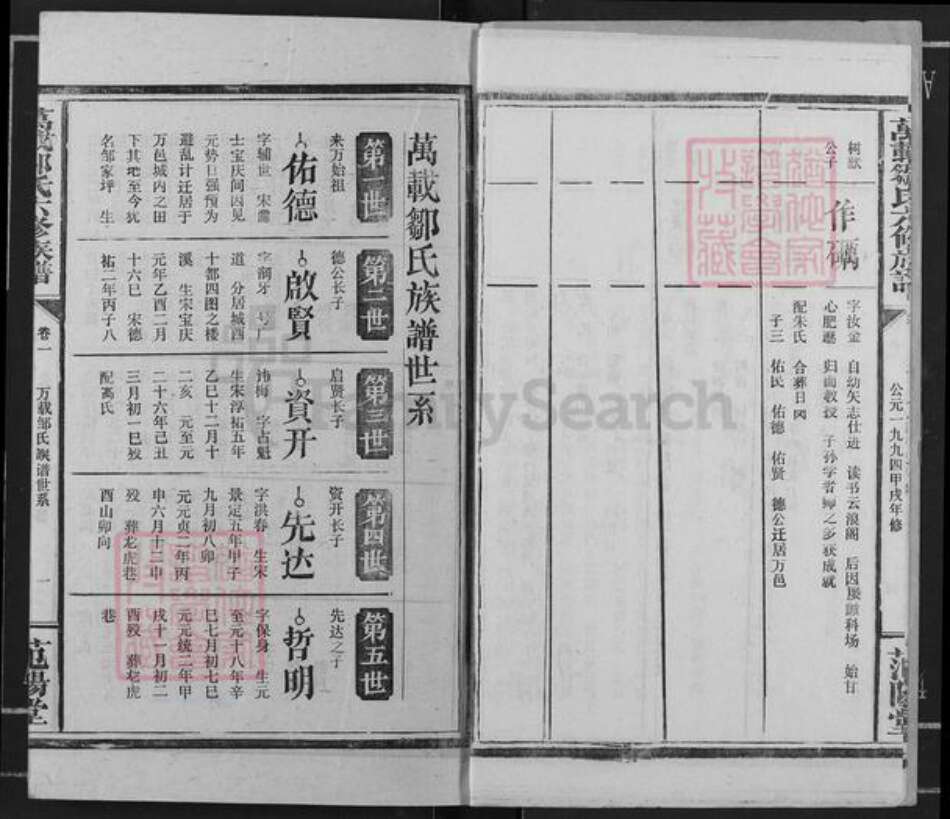 萬載鄒氏六修族譜
公元一九九四甲戌年修
范陽堂
树猷公子
作礪
字汝金 自幼矢志仕进 读书云浪阁 后因屡踬科场 始甘
心肥遯 归而教授 子孙学者师之多获成就
配朱氏 合葬日
子三 佑民 佑德 佑贤 德公迁居万邑
萬載鄒氏族譜世系
第一世
来万始祖
佑德
字辅世 宋
士宝庆间因见
元势日强预为
避乱计迁居于
万邑城内之田
下其地至今犹
名邹家坪 生
第二世
德公长子
啟賢
字润牙 号
道 分居城西
十都四图之楼
溪 生宋宝庆
元年乙酉二月
十六巳 宋德
祐二年丙子八
第三世
启贤长子
資开
讳梅 字占魁
生宋淳祐五年
乙巳十二月十
二亥 元至元
二十六年己丑
三月初一巳殁
配高氏
第四世
资开长子
先达
字洪春 生宋
景定五年甲子
九月初八卯
元元贞二年丙
申六月十二申
殁 葬老虎巷
酉山卯向
第五世
先达之子
哲明
字保身 生元
至元十八年辛
巳七月初七巳
元元统二年甲
戌十一月初二
酉殁 葬老虎
巷
萬載鄒氏六修族譜
卷一
万载邹氏族谱世系
一
范陽堂
FamilySearch